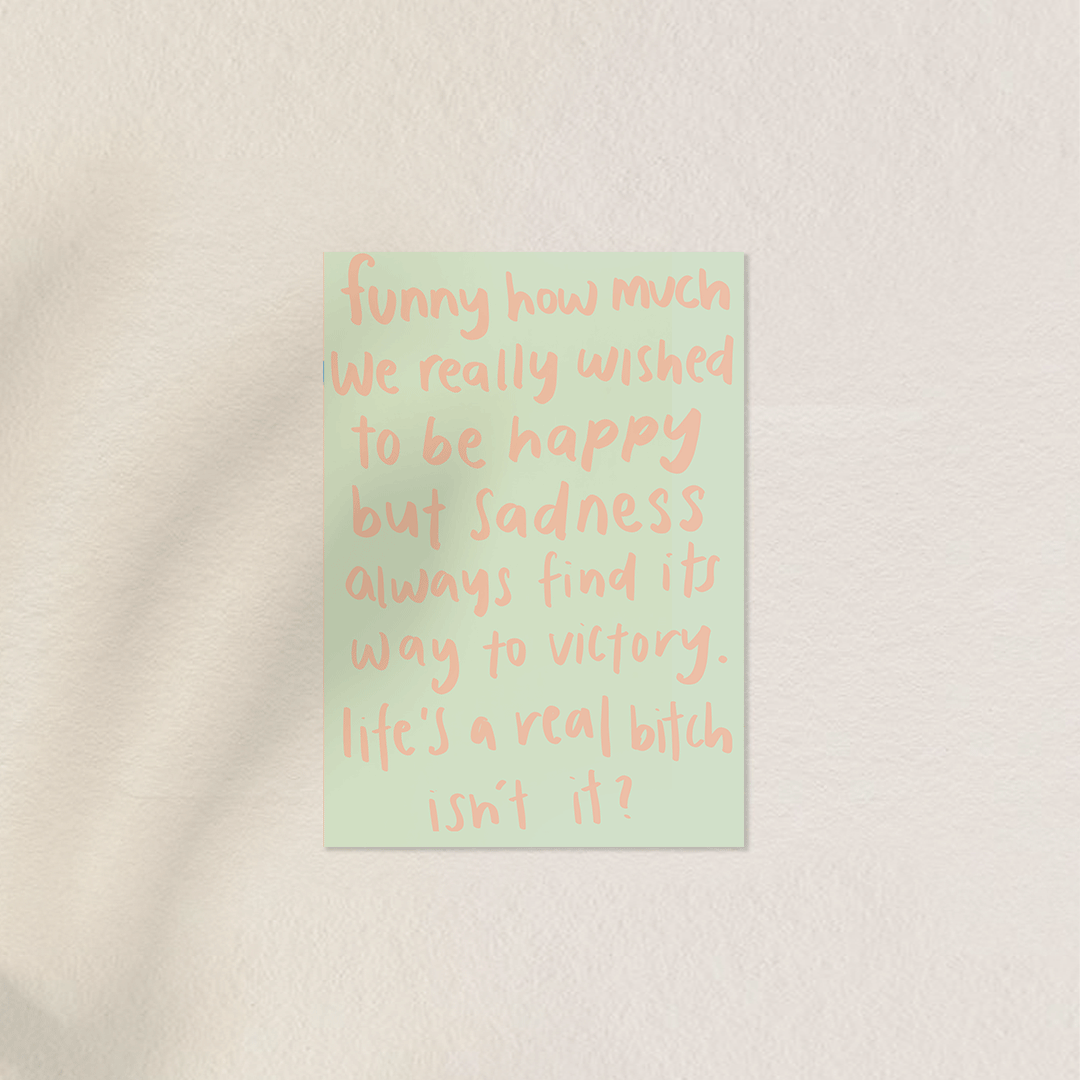 funny how much
We really wished
to be happy
but sadness
always find its
way to victory.
life's a real bitch
isn't it?